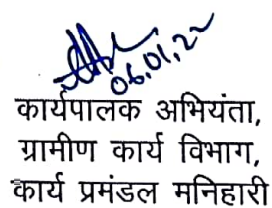 06.01.22
कार्यपालक अभियंता,
ग्रामीण कार्य विभाग,
कार्य प्रमंडल मनिहारी